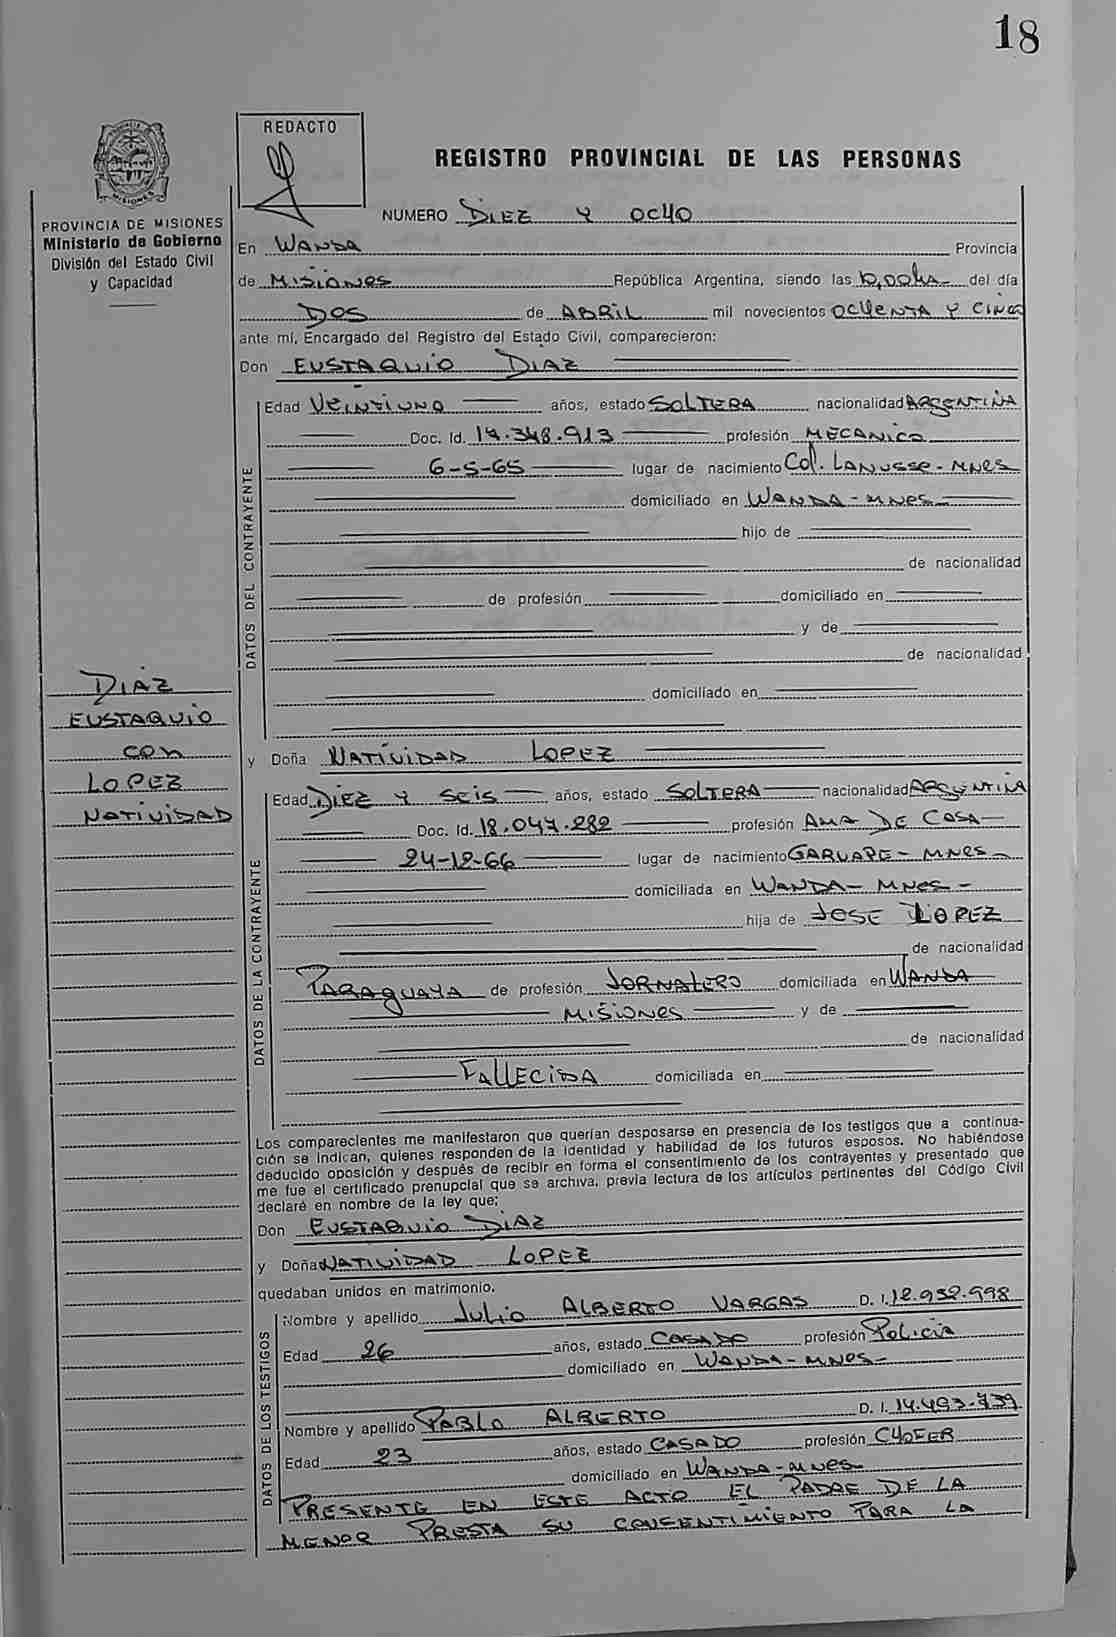 18
REDACTO
REGISTRO PROVINCIAL DE LAS PERSONAS
PROVINCIA DE MISIONES
Ministerio de Gobierno
División del Estado Civil
y Capacidad
NUMERO DIEZ Y OCHO
En WANDA Provincia
de MISIONES República Argentina, siendo las 10,00hs del día
DOS de ABRIL mil novecientos OCHENTA Y CINCO
ante mí, Encargado del Registro del Estado Civil, comparecieron:
Don EUSTAQUIO DIAZ
DATOS DEL CONTRAYENTE
Edad VEINTIUNO años, estado SOLTERA nacionalidad ARGENTINA
Doc. Id. 17.348.913 profesión MECANICO
6-5-65 lugar de nacimiento Col. LANUSSE - MNES
domiciliado en WANDA - MNES
hijo de
de nacionalidad
de profesión domiciliado en
y de
de nacionalidad
domiciliado en
DIAZ
EUSTAQUIO
CON
LOPEZ
NATIVIDAD
y Doña NATIVIDAD LOPEZ
DATOS DE LA CONTRAYENTE
Edad DIEZ Y SEIS años, estado SOLTERA nacionalidad ARGENTINA
Doc. Id. 18.047.282 profesión AMA DE CASA
24-12-66 lugar de nacimiento GARUAPE - MNES
domiciliada en WANDA - MNES -
hija de JOSE LOPEZ
de nacionalidad
PARAGUAYA de profesión JORNALERO domiciliada en WANDA
MISIONES y de
de nacionalidad
FALLECIDA domiciliada en
Los comparecientes me manifestaron que querían desposarse en presencia de los testigos que a continua-
ción se indican, quienes responden de la identidad y habilidad de los futuros esposos. No habiéndose
deducido oposición y después de recibir en forma el consentimiento de los contrayentes y presentado que
me fue el certificado prenupcial que se archiva, previa lectura de los artículos pertinentes del Código Civil
declaré en nombre de la ley que;
Don EUSTAQUIO DIAZ
y Doña NATIVIDAD LOPEZ
quedaban unidos en matrimonio.
DATOS DE LOS TESTIGOS
Nombre y apellido JULIO ALBERTO VARGAS D. I. 12.932.998
Edad 26 años, estado CASADO profesión POLICIA
domiciliado en WANDA - MNES -
Nombre y apellido PABLO ALBERTO D. I. 14.493.739
Edad 23 años, estado CASADO profesión CHOFER
domiciliado en WANDA - MNES
PRESENTE EN ESTE ACTO EL PADRE DE LA
MENOR PRESTA SU CONSENTIMIENTO PARA LA